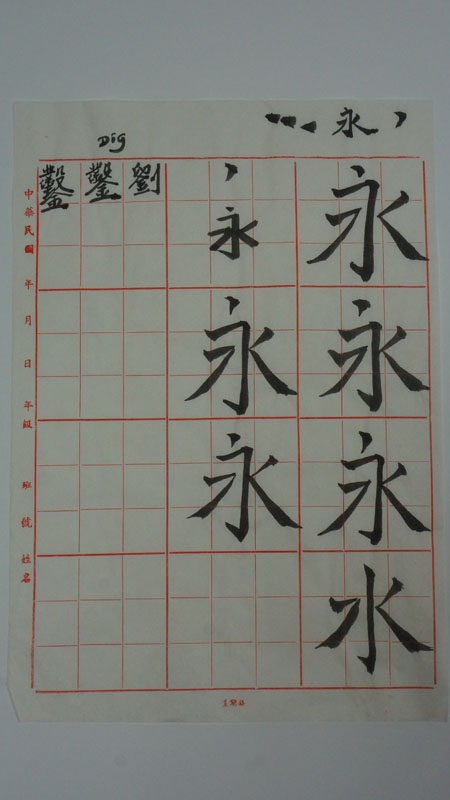 永
Dig
永
永
永
水
永
永
永
劉
鑿
鑿
中華民國 年 月 日 年級 班 號 姓名